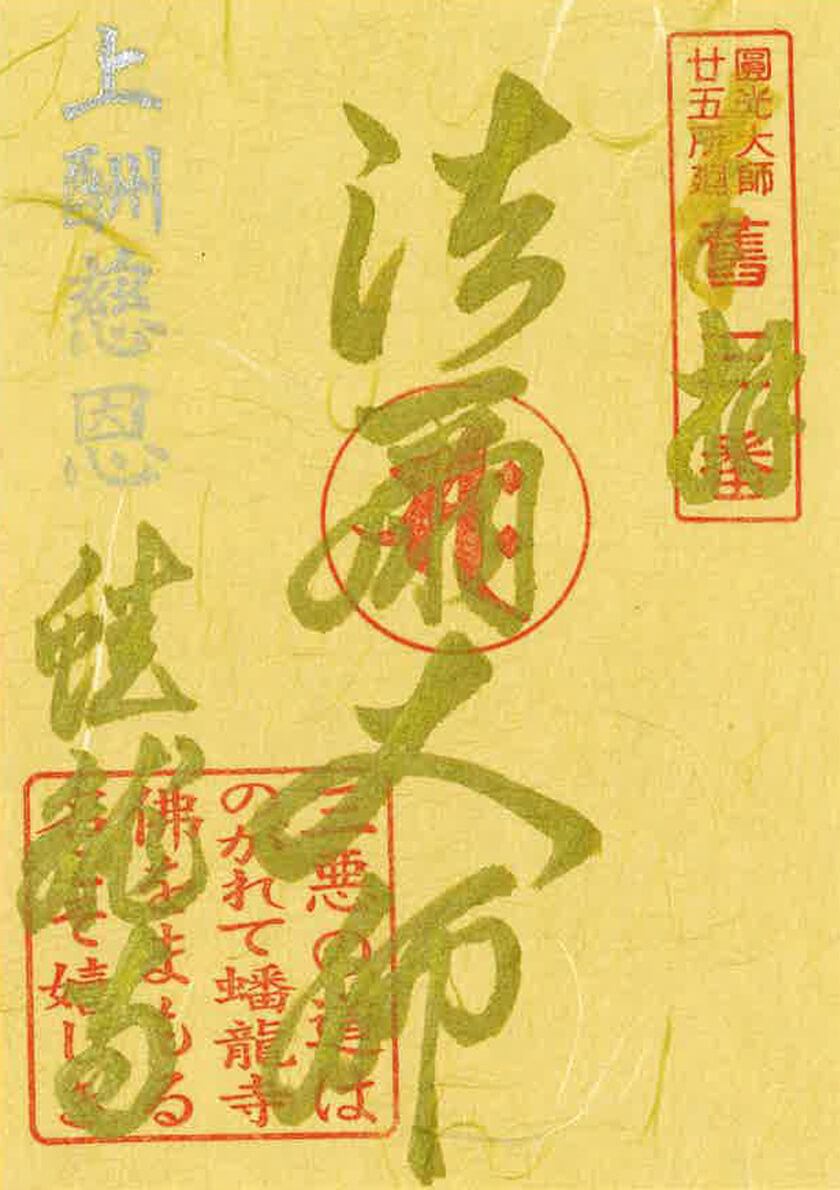 圓光大師
廿五所廻
舊
法爾大師
上酬慈恩
蟠龍寺
三悪の道は
のかれて蟠龍寺
佛をまもる
そ嬉しき